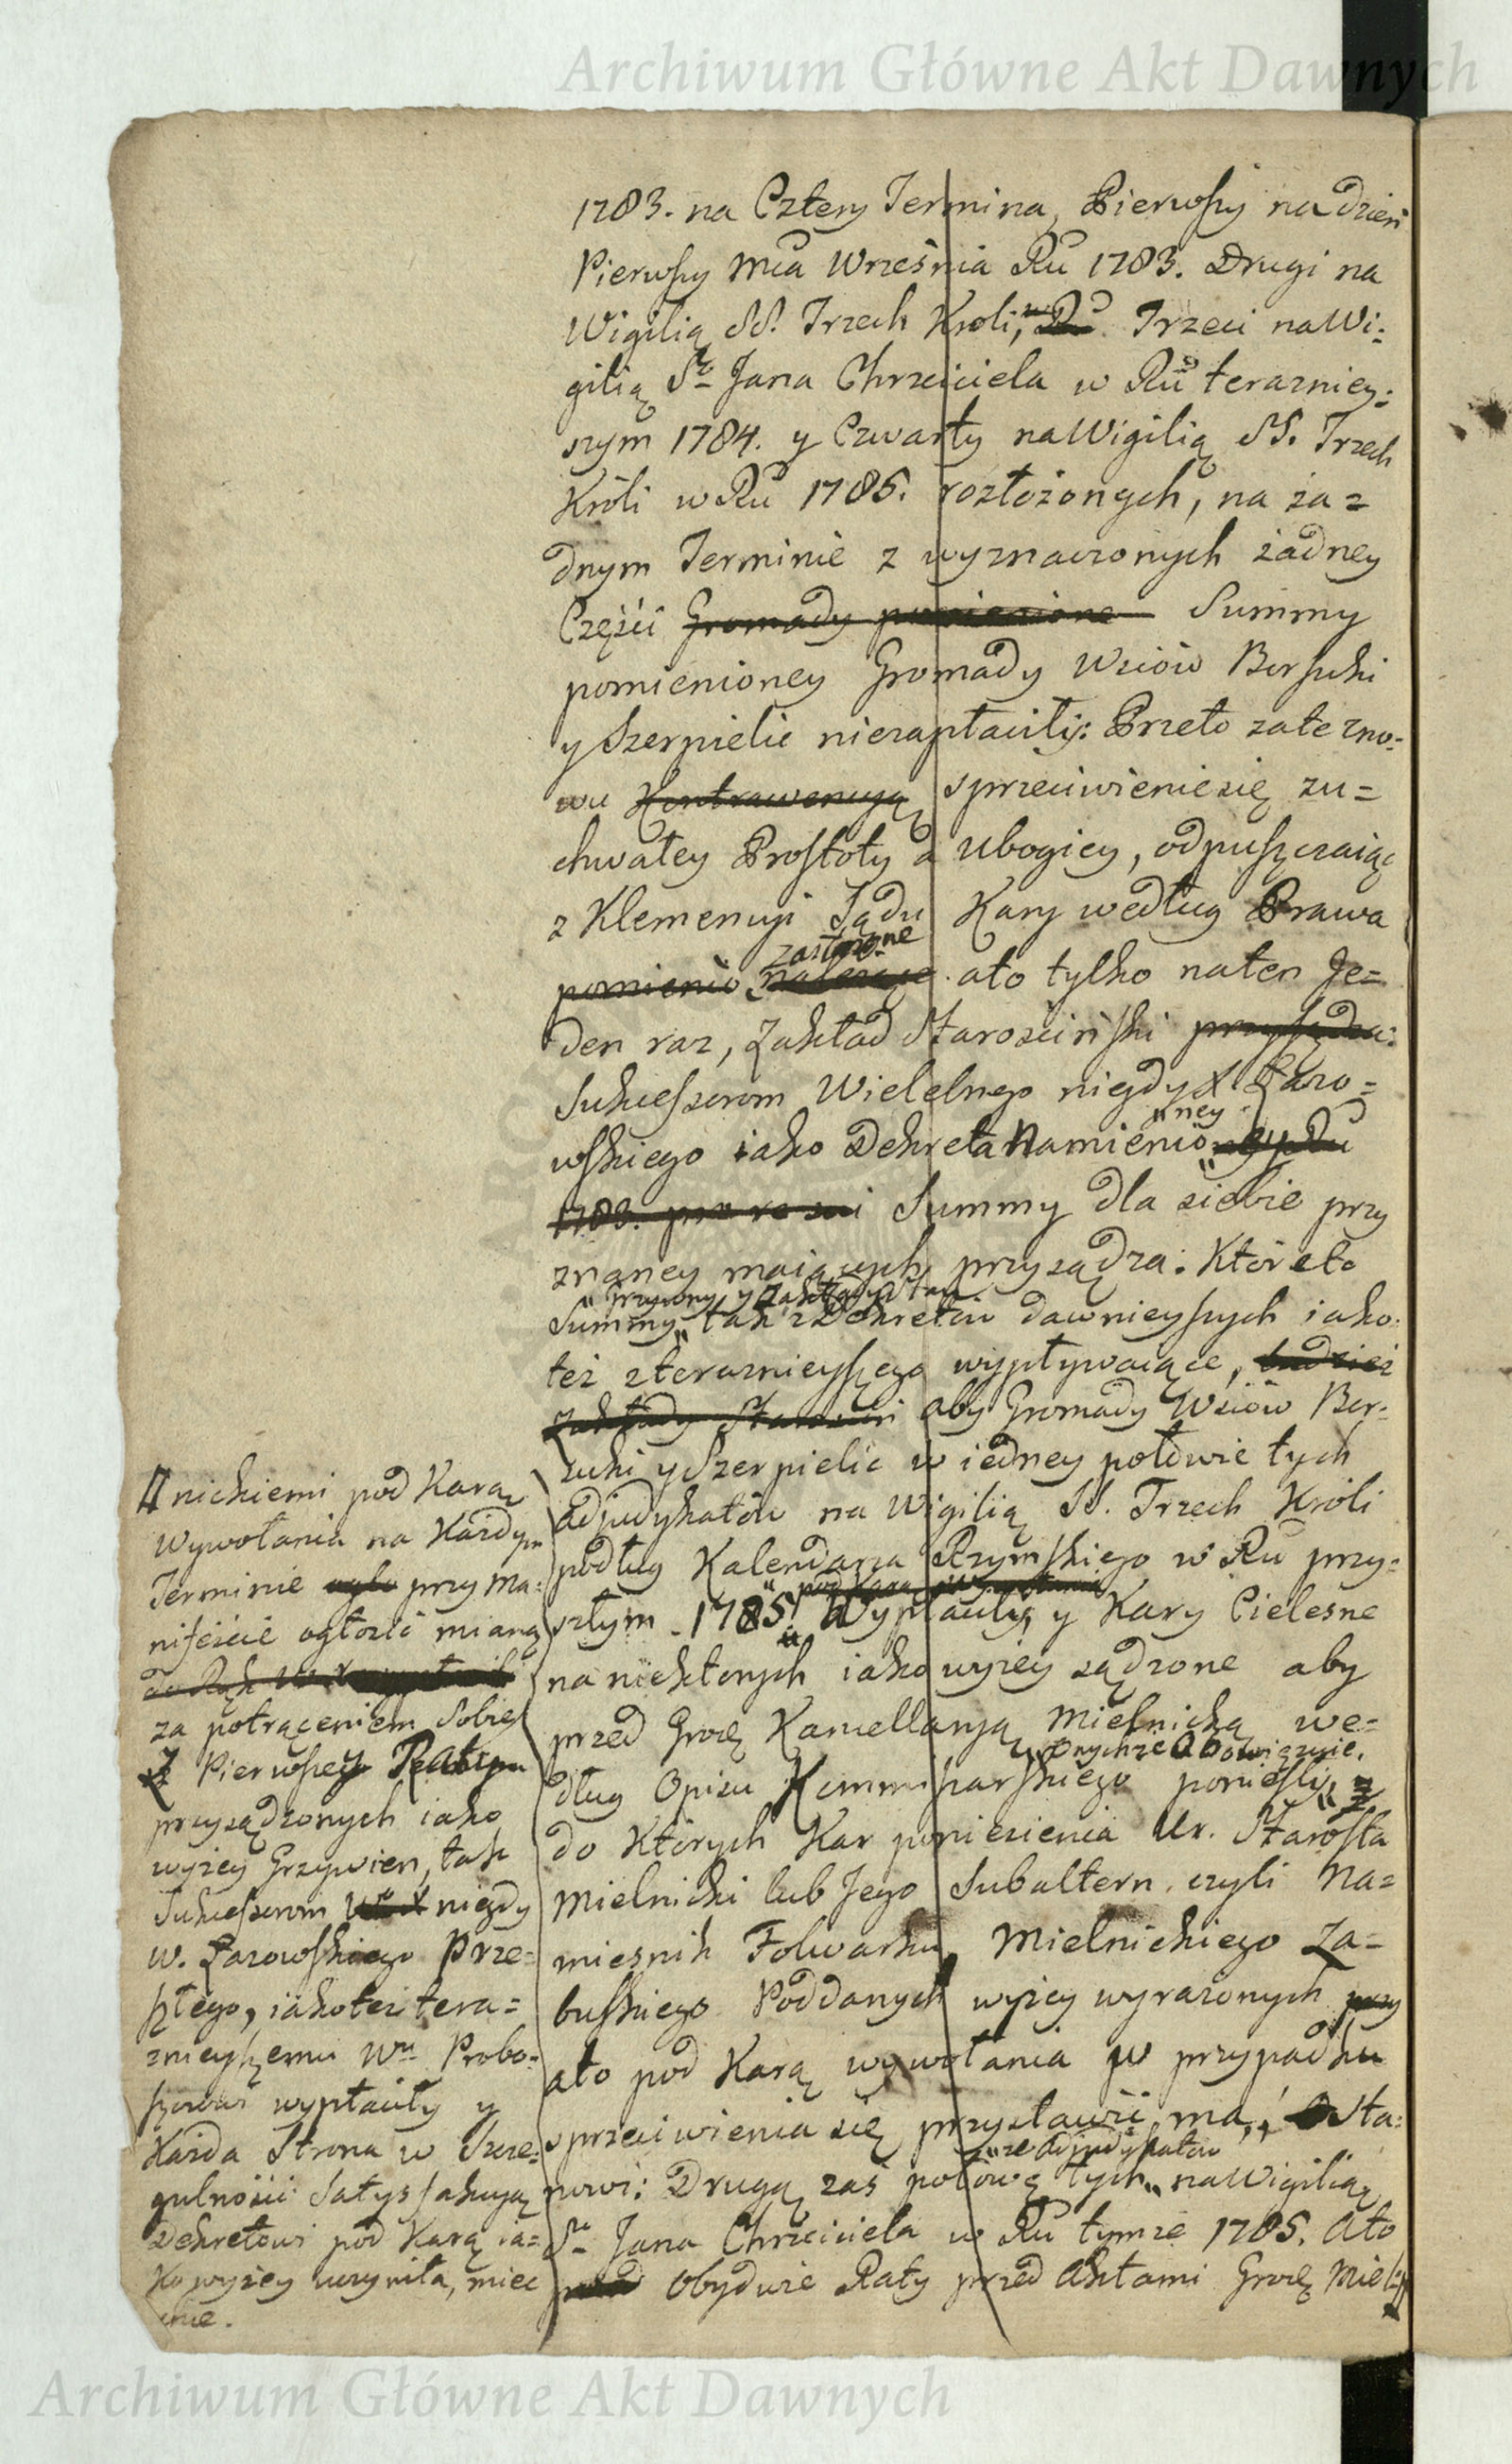 Archiwum Główne Akt Dawnych
1783. na Cztery Termina, Pierwszy na dzień
Pierwszy Mca Września Ru 1783. Drugi na
Wigilią SS. Trzech Kroli, w Ru Trzeci na Wi:
gilią Sgo Jana Chrzciciela w Ru terazniey:
szym 1784. y Czwarty na Wigilią SS. Trzech
Króli w Ru 1785. rozłożonych, na ża=
dnym Terminie z wyznaczonych żadney
Części Gromady pomienione Summy
pomienioney Gromady Wsiów Borsuki
y Szerpielic niezapłaciły: Przeto zate zno=
wu Kontrawencyą sprzeciwienie się zu=
chwałey Prostoty a ubogiey, odpuszczaiąc
z Klemencyi Sądu Kary według Prawa
zasłużone
pomienio należące ato tylko naten Je=
den raz, Zakład Starościński przysądza:
Sukcessorom Wielebnego niegdy X Łazo=
"ney
wskiego iako Dekreta Namienio ney Ru
1783. Summy dla siebie przy
znaney maiących przysądza: Któreto
"Grzywny y Zakłady Star.
Summy" tak z Dekretów dawnieyszych iako:
też z teraznieyszego wypływaiące, tudzież
Zakłady Starościń aby Gromady Wsiów Bor=
suki y Szerpielic w iedney połowie tych
adjudykatów na Wigilią SS. Trzech Króli
podług Kalendarza Rzymskiego w Ru przy=
"pod Karą Wywołania
szłym 1785. Wypłaciły, y Kary Cielesne
na niektorych iako wyżey sądzone aby
przed Grodz. Kancellaryą Mielnicką we=
"onychże Obowiązuie.
dług Opisu Kommissarskiego poniesły,
do Których Kar poniesienia Ur. Starosta
Mielnicki lub Jego Subaltern. czyli Na=
miesnik Folwarku Mielnickiego Za=
buskiego Poddanych wyżey wyrażonych przy
ato pod Karą wywołania w przypadku
sprzeciwienia się przystawić ma, Osta:
"ze Adjudykatów
nowi: Drugą zaś połowę tych" na Wigilią
Sgo Jana Chrzciciela w Ru tymże 1785. Ato
przed Obydwie Raty przed Aktami Grodz. Miel:
nickiemi pod Karą
Wywołania na Każdym
Terminie ogło przy Ma:
nifeście ogłosić mianą
do Rąk
za potrąceniem Sobie
z Pierwszey Raty
przysądzonych iako
wyżey Grzywien, tak
Sukcessorom niegdy
W. Łazowskiego Prze=
szłego, iako też tera=
znieyszemu Wu Probo=
szczowi wypłaciły y
Każda Strona w Szcze:
gulności Satysfakcyą
Dekretowi pod Karą ia=
ko wyżey uczyniła, miec
chce.
Archiwum Główne Akt Dawnych